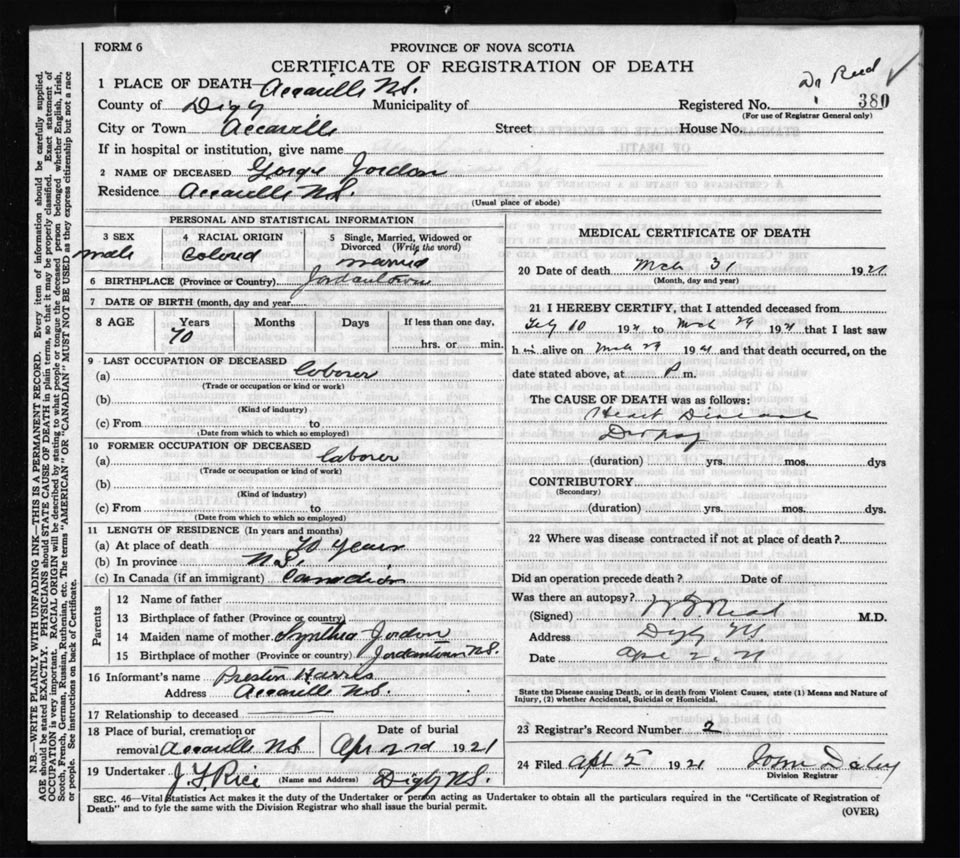 FORM 6
PROVINCE OF NOVA SCOTIA
CERTIFICATE OF REGISTRATION OF DEATH
1 PLACE OF DEATH Accaville N.S.
Dr Reed
County of Digby Municipality of
Registered No. 380
(For use of Registrar General only)
City or Town Accaville Street House No.
If in hospital or institution, give name
2 NAME OF DECEASED Jordon
Residence Accaville N.S.
(Usual place of abode)
PERSONAL AND STATISTICAL INFORMATION
3 SEX male
4 RACIAL ORIGIN Colored
5 Single, Married, Widowed or Divorced (Write the word) married
6 BIRTHPLACE (Province or Country) Jordantown
7 DATE OF BIRTH (month, day and year)
8 AGE Years 70 Months Days If less than one day, hrs. or min.
9 LAST OCCUPATION OF DECEASED
(a) laborer
(Trade or occupation or kind or work)
(b)
(Kind of industry)
(c) From to
(Date from which to which so employed)
10 FORMER OCCUPATION OF DECEASED
(a) laborer
(Trade or occupation or kind of work)
(b)
(Kind of industry)
(c) From to
(Date from which to which so employed)
11 LENGTH OF RESIDENCE (In years and months)
(a) At place of death 70 years
(b) In province N.S.
(c) In Canada (if an immigrant) Canadian
Parents
12 Name of father
13 Birthplace of father (Province or country)
14 Maiden name of mother Synthia Jordon
15 Birthplace of mother (Province or country) Jordantown N.S.
16 Informant's name Preston Harris
Address Accaville N.S.
17 Relationship to deceased
18 Place of burial, cremation or removal Accaville N.S.
Date of burial Apr 2nd 1921
19 Undertaker J. F. Rice (Name and Address) Digby N.S.
MEDICAL CERTIFICATE OF DEATH
20 Date of death Mch 31 1921
(Month, day and year)
21 I HEREBY CERTIFY, that I attended deceased from
Feby 10 1921 to Mch 29 1921 that I last saw
him alive on Mch 29 1921 and that death occurred, on the
date stated above, at P m.
The CAUSE OF DEATH was as follows:
Heart Disease and
Dropsy
(duration) yrs. mos. dys
CONTRIBUTORY
(Secondary)
(duration) yrs. mos. dys.
22 Where was disease contracted if not at place of death?
Did an operation precede death? Date of
Was there an autopsy?
(Signed) M.D.
Address Digby N.S.
Date Apr 2. 21
State the Disease causing Death, or in death from Violent Causes, state (1) Means and Nature of
Injury, (2) whether Accidental, Suicidal or Homicidal.
23 Registrar's Record Number 2
24 Filed 1921 Daley
Division Registrar
SEC. 46—Vital Statistics Act makes it the duty of the Undertaker or person acting as Undertaker to obtain all the particulars required in the "Certificate of Registration of
Death" and to fyle the same with the Division Registrar who shall issue the burial permit.
(OVER)
N.B.—WRITE PLAINLY WITH UNFADING INK—THIS IS A PERMANENT RECORD. Every item of information should be carefully supplied.
AGE should be stated EXACTLY. PHYSICIANS should STATE CAUSE OF DEATH in plain terms, so that it may be properly classified. Exact statement of
OCCUPATION is very important. RACIAL ORIGIN will be described by stating to what people or tongue the deceased person belonged, whether English, Irish,
Scotch, French, German, Russian, Ruthenian, etc. The terms "AMERICAN" OR "CANADIAN" MUST NOT BE USED as they express citizenship but not a race
or people. See instructions on back of Certificate.